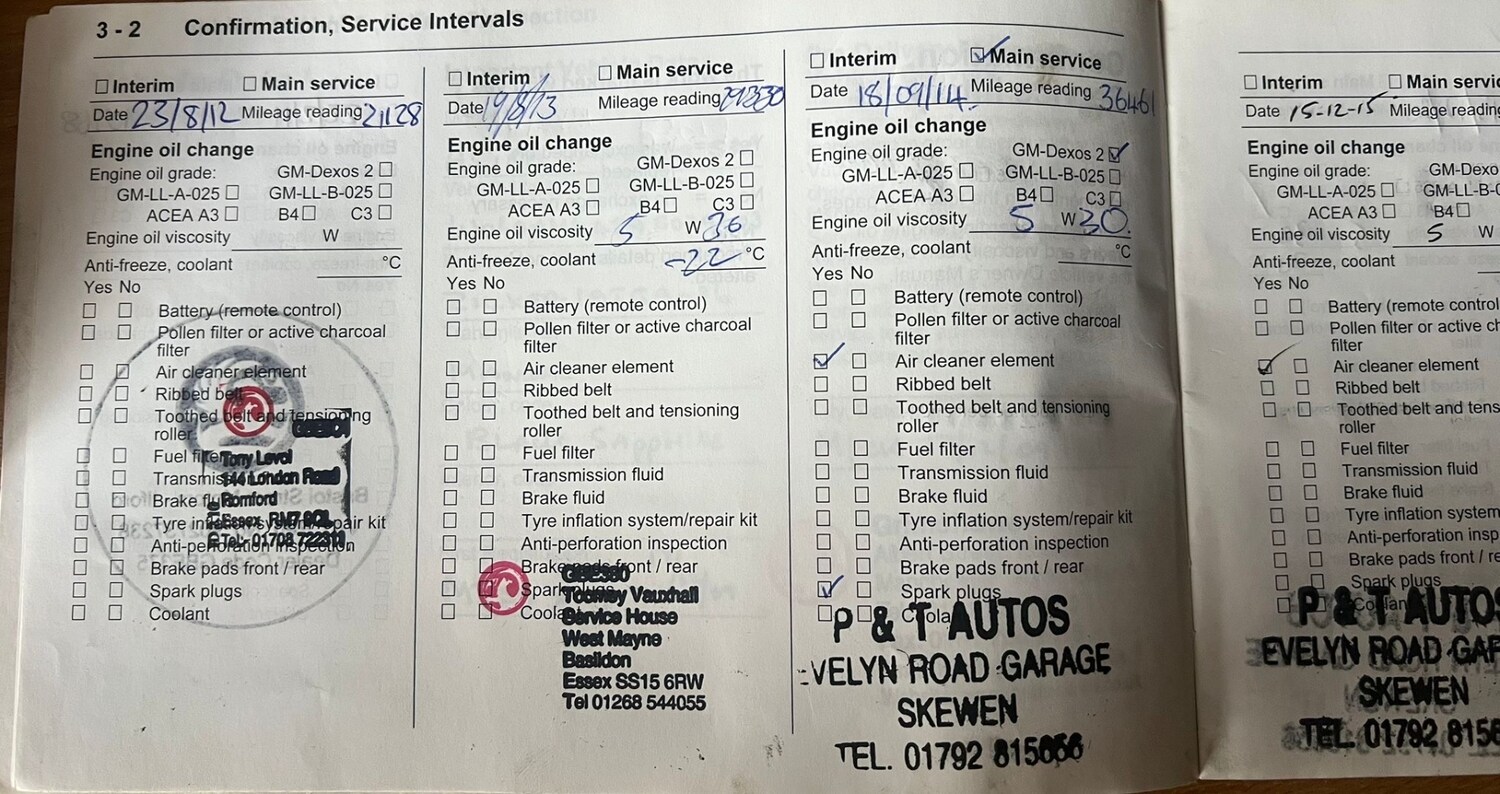 3 - 2 Confirmation, Service Intervals
Interim Main service
Date 23/8/12 Mileage reading 21128
Engine oil change
Engine oil grade: GM-Dexos 2
GM-LL-A-025 GM-LL-B-025
ACEA A3 B4 C3
Engine oil viscosity W
Anti-freeze, coolant °C
Yes No
Battery (remote control)
Pollen filter or active charcoal
filter
Air cleaner element
Ribbed belt
Toothed belt and tensioning
roller
Fuel filter
Transmission fluid
Brake fluid
Tyre inflation system/repair kit
Anti-perforation inspection
Brake pads front / rear
Spark plugs
Coolant
Tony Levoi
144 London Road
Romford
Essex RM7 9QL
Tel:- 01708 722311
Interim Main service
Date 19/8/13 Mileage reading 29330
Engine oil change
Engine oil grade: GM-Dexos 2
GM-LL-A-025 GM-LL-B-025
ACEA A3 B4 C3
Engine oil viscosity 5 W 30
Anti-freeze, coolant -22 °C
Yes No
Battery (remote control)
Pollen filter or active charcoal
filter
Air cleaner element
Ribbed belt
Toothed belt and tensioning
roller
Fuel filter
Transmission fluid
Brake fluid
Tyre inflation system/repair kit
Anti-perforation inspection
Brake pads front / rear
Spark plugs
Coolant
GBE380
Toomey Vauxhall
Service House
West Mayne
Basildon
Essex SS15 6RW
Tel 01268 544055
Interim Main service
Date 18/09/14. Mileage reading 36461
Engine oil change
Engine oil grade: GM-Dexos 2
GM-LL-A-025 GM-LL-B-025
ACEA A3 B4 C3
Engine oil viscosity 5 W 30.
Anti-freeze, coolant °C
Yes No
Battery (remote control)
Pollen filter or active charcoal
filter
Air cleaner element
Ribbed belt
Toothed belt and tensioning
roller
Fuel filter
Transmission fluid
Brake fluid
Tyre inflation system/repair kit
Anti-perforation inspection
Brake pads front / rear
Spark plugs
Coola
P & T AUTOS
EVELYN ROAD GARAGE
SKEWEN
TEL. 01792 815656
Interim Main servic
Date 15-12-15 Mileage reading
Engine oil change
Engine oil grade: GM-Dexo
GM-LL-A-025 GM-LL-B-0
ACEA A3 B4
Engine oil viscosity 5 W
Anti-freeze, coolant
Yes No
Battery (remote control
Pollen filter or active ch
filter
Air cleaner element
Ribbed belt
Toothed belt and tens
roller
Fuel filter
Transmission fluid
Brake fluid
Tyre inflation system
Anti-perforation insp
Brake pads front / re
Spark plugs
Coolan
P & T AUTOS
EVELYN ROAD GAR
SKEWEN
TEL. 01792 8156